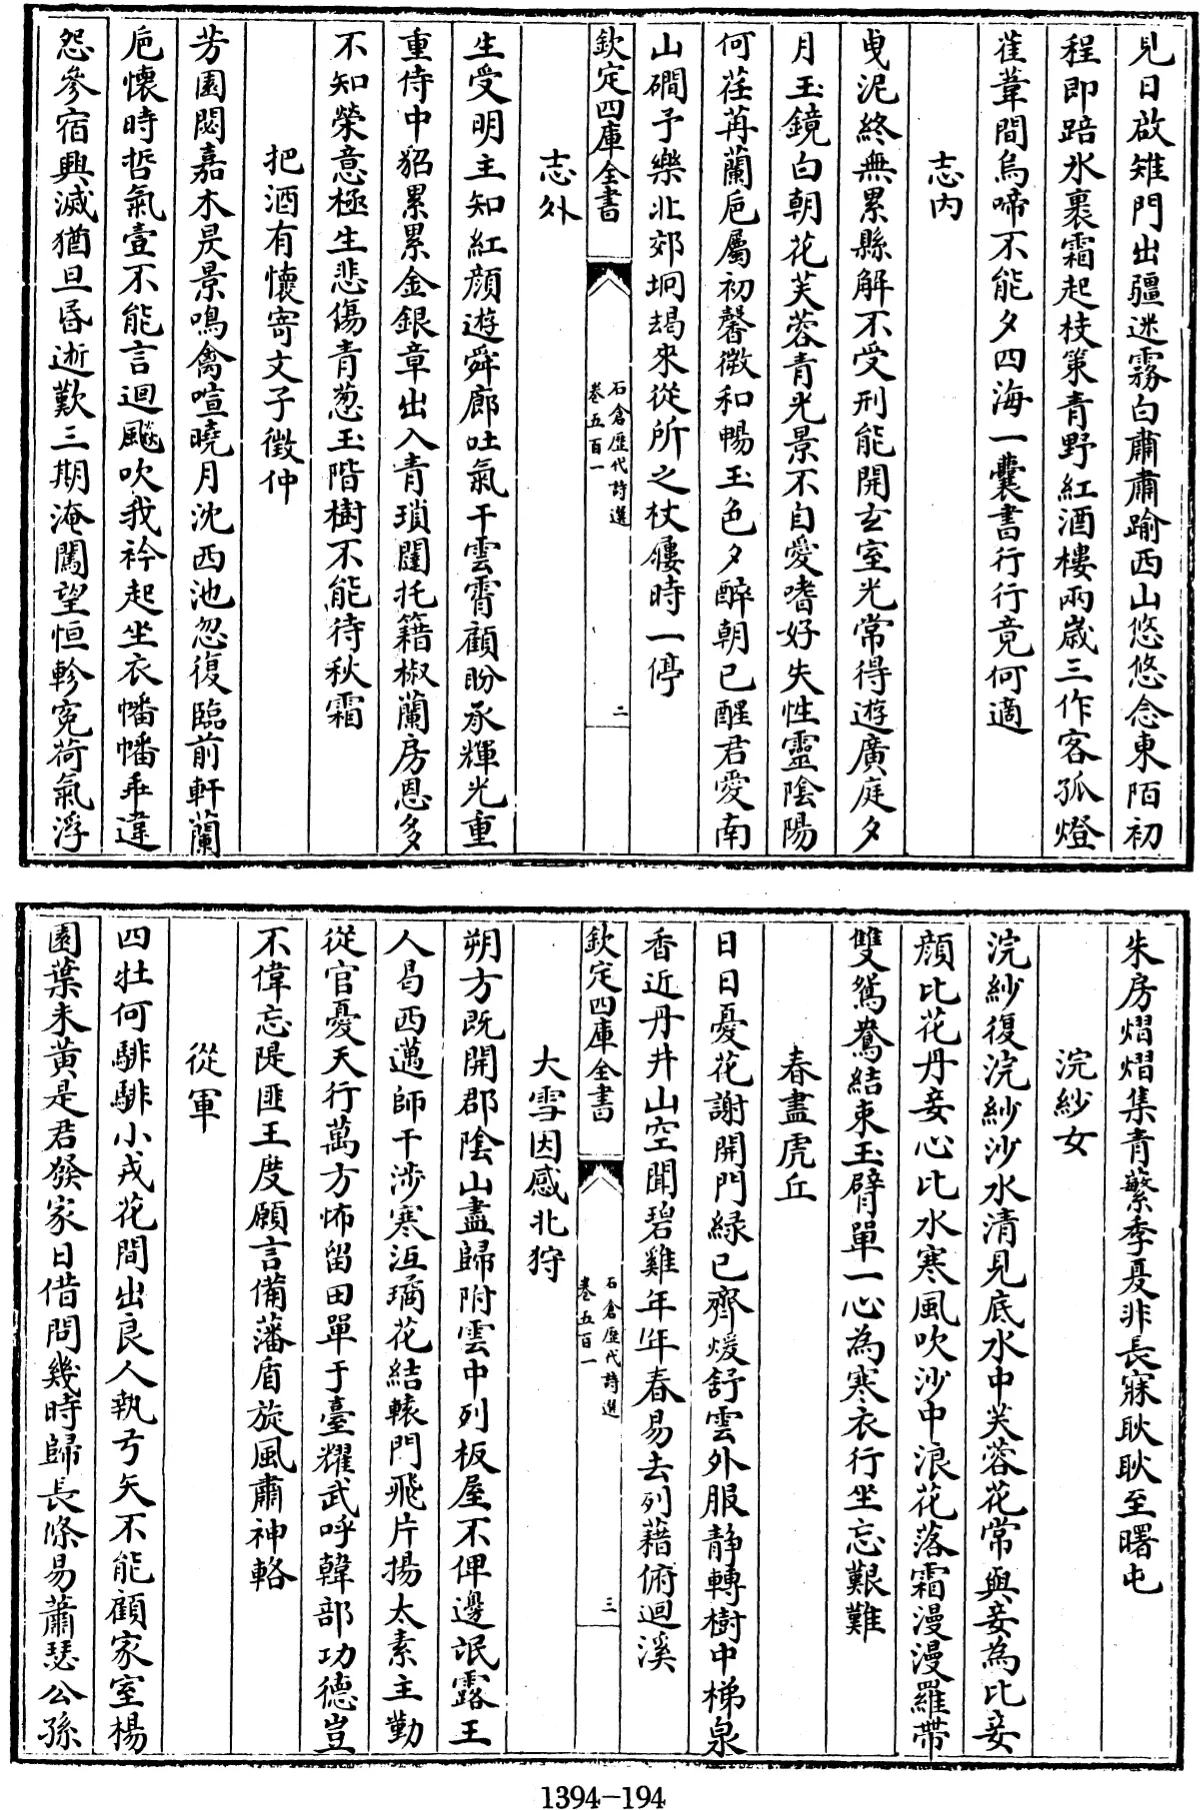 見日啟雉門出疆迷霧白肅肅踰西山悠悠念東陌初
程即踣氷裏霜起枝策青野紅酒樓兩歲三作客孤燈
萑葦間烏啼不能夕四海一囊書行行竟何適
志內
曳泥終無累縣解不受刑能開玄室光常得遊廣庭夕
月玉鏡白朝花芙蓉青光景不自愛嗜好失性靈陰陽
何荏苒蘭巵屬初馨微和暢玉色夕醉朝已醒君愛南
山磵予樂北郊坰朅來從所之杖屨時一停
欽定四庫全書
石倉歷代詩選
卷五百一
二
志外
生受明主知紅顔遊舜廊吐氣干雲霄顧盼承輝光重
重侍中貂累累金銀章出入青瑣闥托籍椒蘭房恩多
不知榮意極生悲傷青葱玉階樹不能待秋霜
把酒有懷寄文子徵仲
芳園閟嘉木昃景鳴禽喧曉月沈西池忽復臨前軒蘭
巵懷時哲氣壹不能言迴飈吹我衿起坐衣幡幡乖違
怨參宿興滅猶旦昏逝歎三期淹闊望恒軫寃荷氣浮
朱房熠熠集青蘩季夏非長寐耿耿至曙屯
浣紗女
浣紗復浣紗沙水清見底水中芙蓉花常與妾為比妾
顔比花丹妾心比水寒風吹沙中浪花落霜漫漫羅帶
雙鴛鴦結束玉臂單一心為寒衣行坐忘艱難
春盡虎丘
日日憂花謝開門緑已齊煖舒雲外服静轉樹中梯泉
香近丹井山空聞碧雞年年春易去列藉俯迴溪
欽定四庫全書
石倉歷代詩選
卷五百一
三
大雪因感北狩
朔方既開郡陰山盡歸附雲中列板屋不俾邊氓露王
人曷西邁師干涉寒沍璚花結轅門飛片揚太素主勤
從官憂天行萬方怖留田單于臺耀武呼韓部功德豈
不偉忘隄匪王度願言備藩盾旋風肅神輅
從軍
四牡何騑騑小戎花間出良人執弓矢不能顧家室楊
園葉未黃是君發家日借問幾時歸長條易蕭瑟公孫
1394-194